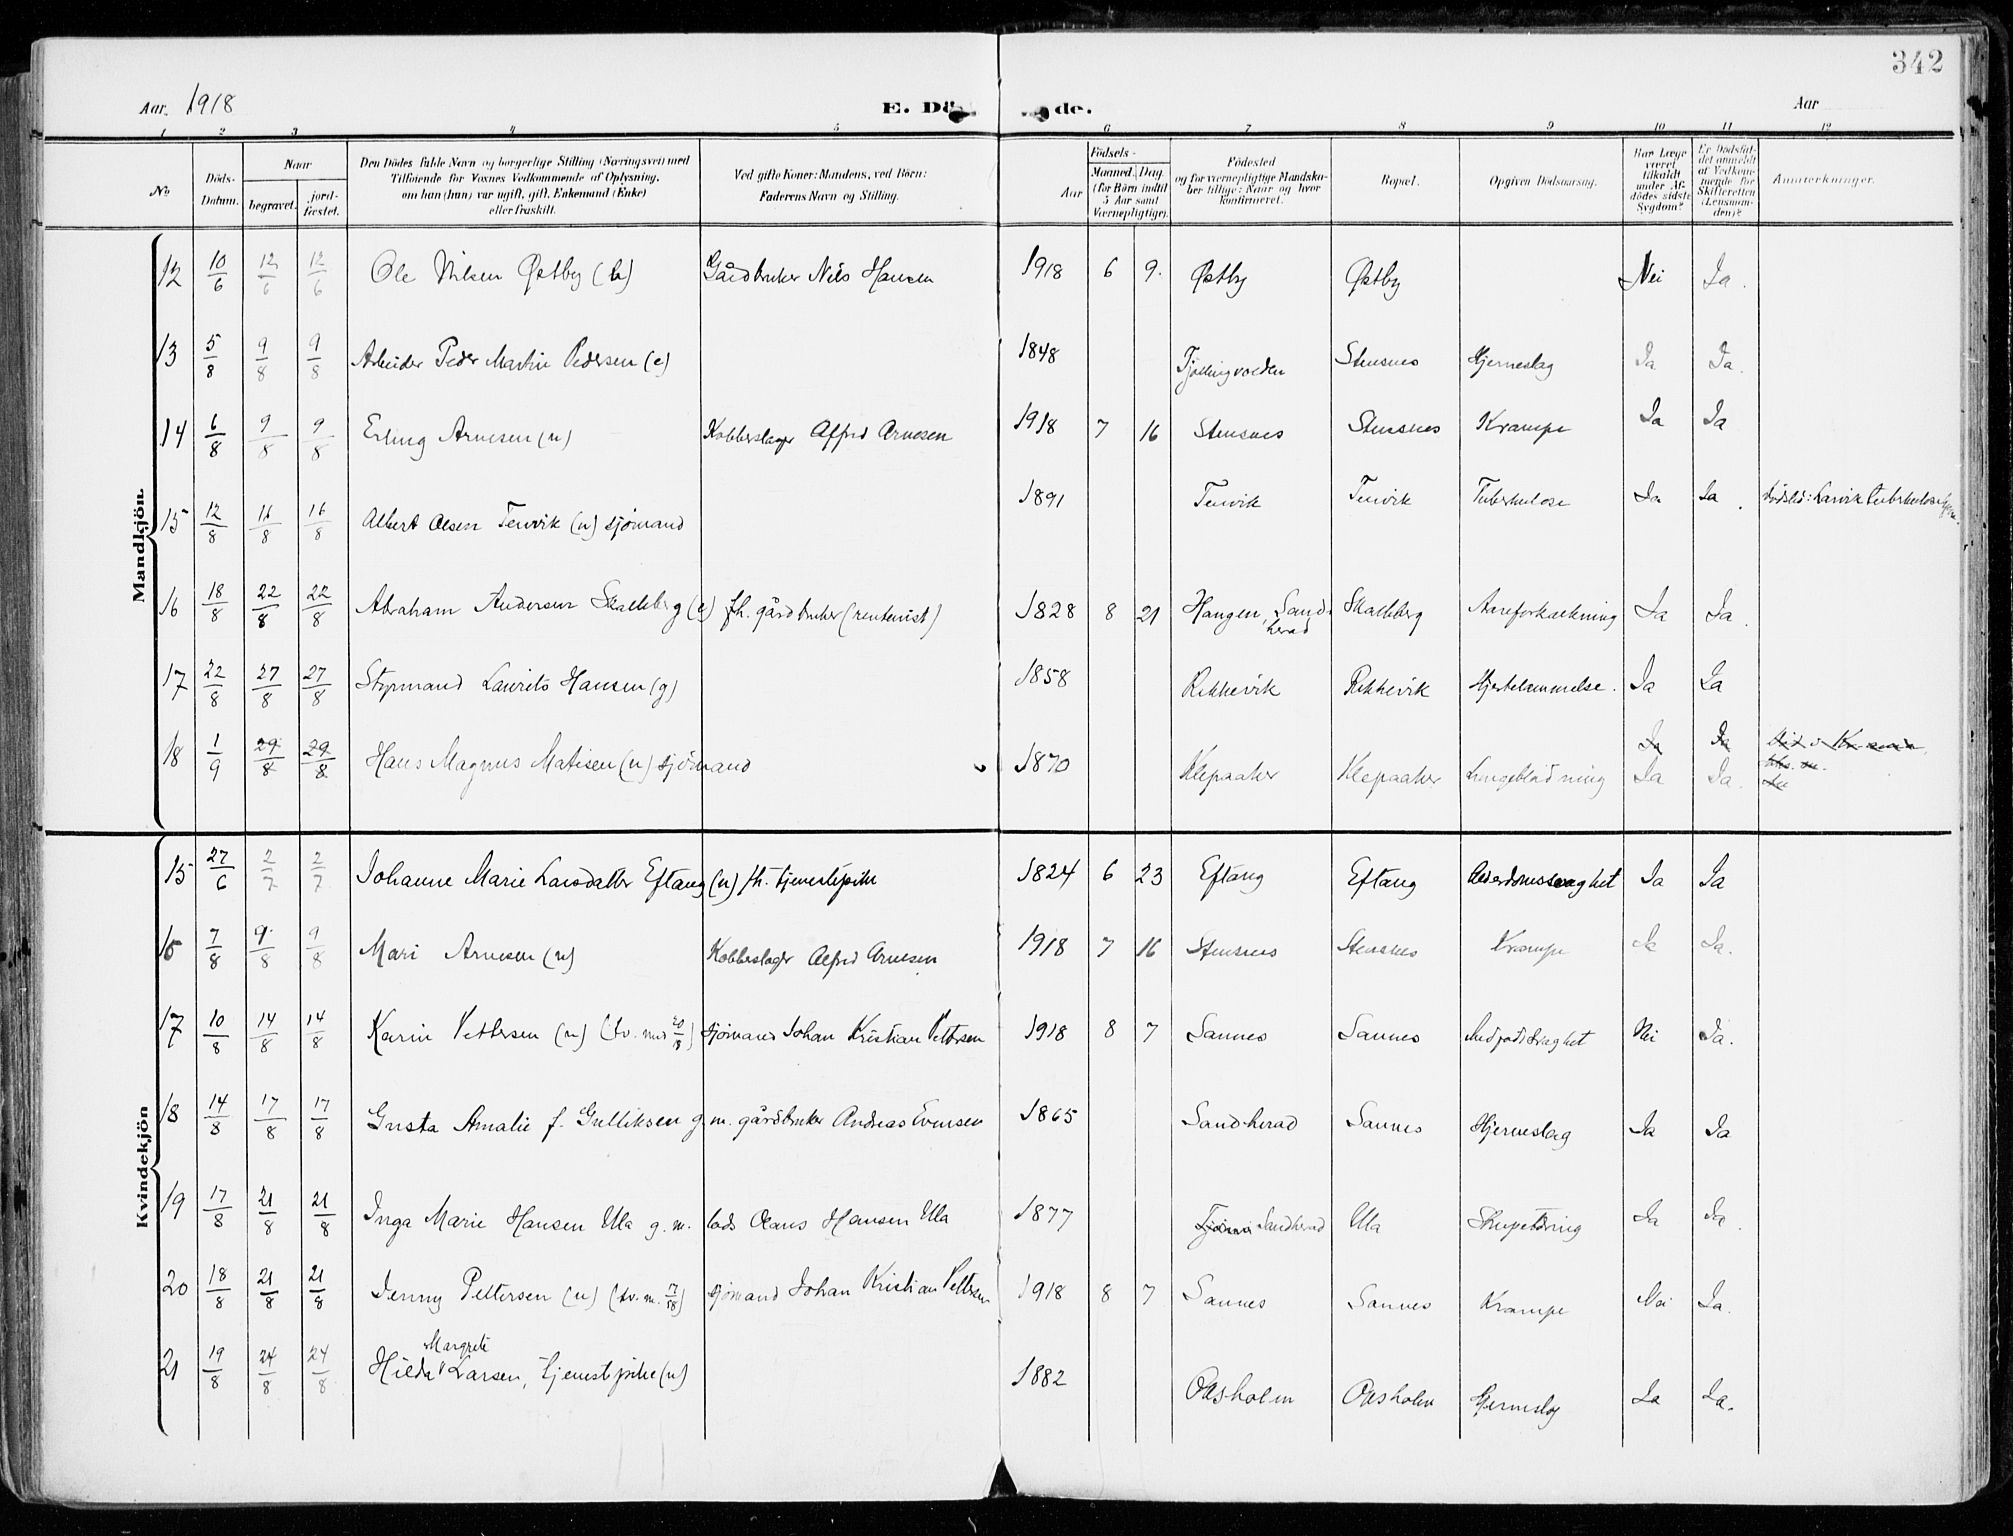 342
Aar. 1918 E. Dö de. Aar
1 2 3 4 5 6 7 8 9 10 11 12
No Döds-Datum. Naar begravet. jord-fæstet. Den Dødes fulde Navn og borgerlige Stilling (Næringsvei) med Tilföiende for Voxnes Vedkommende af Oplysning, om han (hun) var ugift, gift, Enkemand (Enke) eller fraskilt. Ved gifte Koner: Mandens, ved Börn: Faderens Navn og Stilling. Födsels- Aar Maaned. Dag. (for Börn indtil 5 Aar samt Værnepligtige). Födested og for værnepligtige Mandskaber tillige: Naar og hvor konfirmeret. Bopæl. Opgiven Dødsaarsag. Har Læge været tilkaldt under Afdødes sidste Sygdom? Er Dødsfaldet anmeldt af Vedkommende for Skifteretten (Lensmanden)? Anmærkninger.
Mandkjön.
12 10/6 12/6 12/6 Ole Nilsen Østby (b) Gårdbruker Nils Hansen 1918 6 9. Østby Østby Nei Ja.
13 5/8 9/8 9/8 Arbeider Peder Martin Pedersen (e) 1848 Tjøllingvolden Stensnes Hjerneslag Ja Ja.
14 6/8 9/8 9/8 Erling Arnesen (u) Kobberslager Alfred Arnesen 1918 7 16 Stensnes Stensnes Krampe Ja Ja
15 12/8 16/8 16/8 Albert Olsen Tenvik (u) sjömand 1891 Tenvik Tenvik Tuberkulose Ja Ja. Dødsted: Larvik Tuberkulosehjem.
16 18/8 22/8 22/8 Abraham Andersen Skalleberg (e) fh. gårdbruker (rentenist) 1828 8 21 Haugen, Sandeherad Skalleberg Aareforkalkning Ja Ja.
17 22/8 27/8 27/8 Styrmand Laurits Hansen (g) 1858 Rekkevik Rekkevik Hjertelammelse. Ja Ja
18 1/9 29/8 29/8 Hans Magnus Matisen (u) sjömand 1870 Klepaaker Klepaaker Lungeblödning Ja Ja Ja Ja.
Kvindekjön
15 27/6 2/7 2/7 Johanne Marie Larsdatter Eftang (u) fh. tjenestepike 1824 6 23 Eftang Eftang Alderdomssvaghet Ja Ja
16 7/8 9/8 9/8 Mari Arnesen (u) Kobberslager Alfred Arnesen 1918 7 16 Stensnes Stensnes Krampe Ja Ja.
17 10/8 14/8 14/8 Karin Pettersen (u) (tv. med 20/18) sjömand Johan Kristian Pettersen 1918 8 7 Sannes Sannes Medfødt svaghet Nei Ja.
18 14/8 17/8 17/8 Gusta Amalie f. Gulliksen g. m. gårdbruker Andreas Evensen 1865 Sandeherad Sannes Hjerneslag Ja Ja
19 17/8 21/8 21/8 Inga Marie Hansen Ula g. m. lods Olaus Hansen Ula 1877 Tjømø Sandeherad Ula Ja Ja.
20 18/8 21/8 21/8 Jenny Pettersen (u) (tv. m. 17/18) sjömand Johan Kristian Pettersen 1918 8 7 Sannes Sannes Krampe Nei Ja.
Margrete
21 19/8 24/8 24/8 Hilda Larsen, tjenestpike (u) 1882 Oksholm Oksholm Hjerneslag Ja Ja.